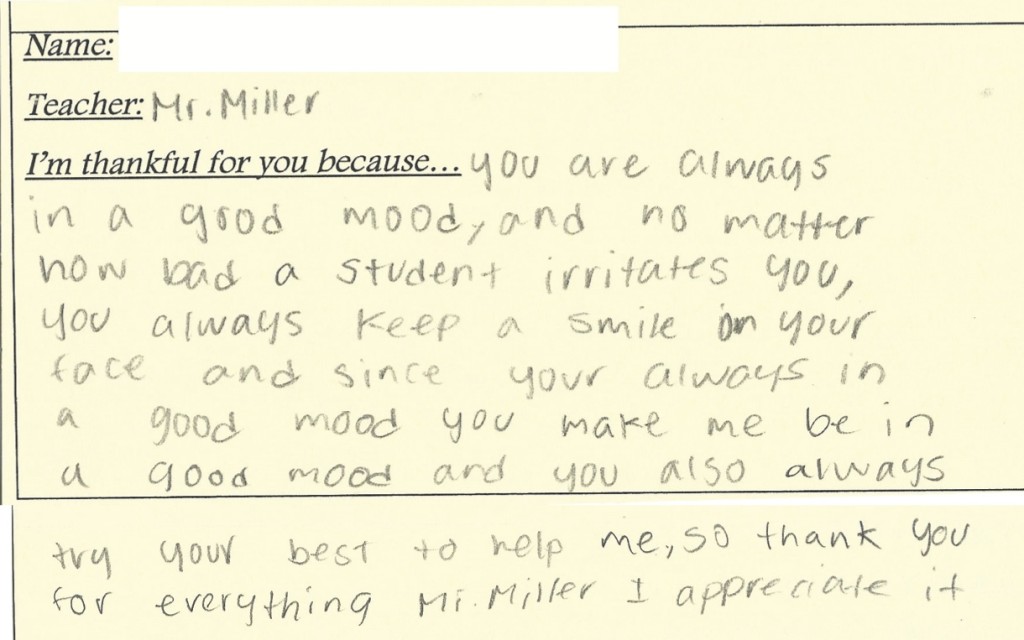 Name:
Teacher: Mr. Miller
I'm thankful for you because... you are always
in a good mood, and no matter
how bad a student irritates you,
you always keep a smile on your
face and since your always in
a good mood you make me be in
a good mood and you also always
try your best to help me, so thank you
for everything Mr. Miller I appreciate it